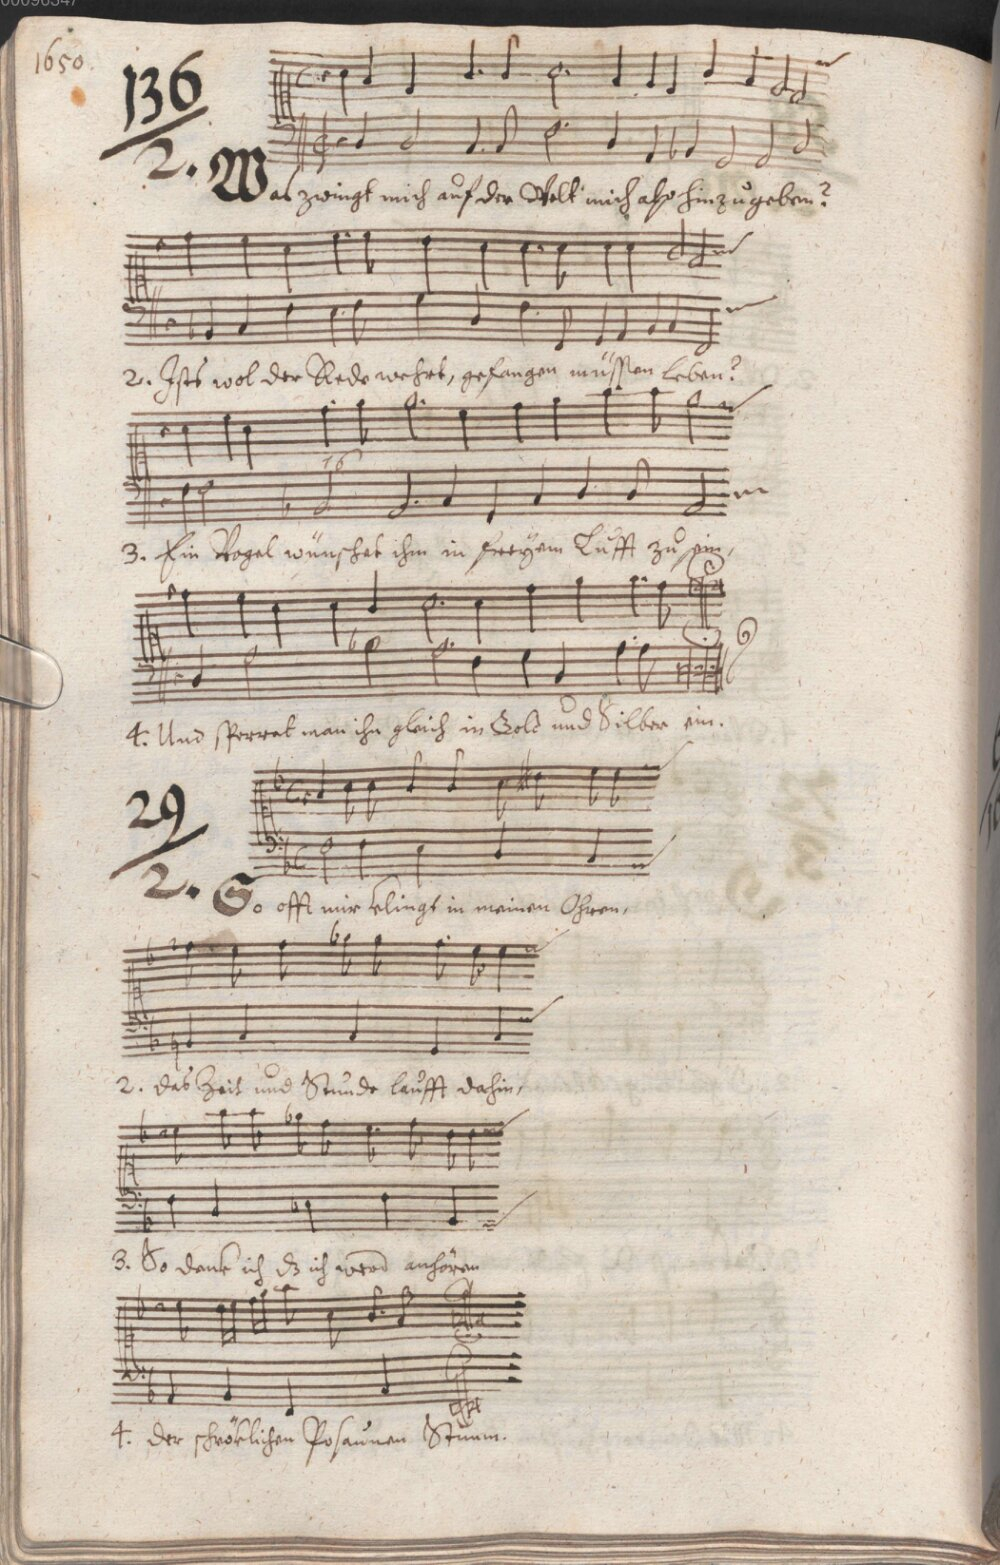 00096347
1650.
136
2.
Was zwingt mich auf der Welt mich also hinzugeben?
2. Ists wol der Rede wehrt, gefangen müssen leben?
76
3. Ein Vogel wünschet ihm in freyem Lufft zu sein,
4. Und sperret man ihn gleich in Gold und Silber ein.
29
2.
So offt mir klingt in meinen Ohren,
2. das Zeit und Stunde laufft dahin,
3. So denk ich dz ich werd anhören
4. der schröklichen Posaunen Stimm.